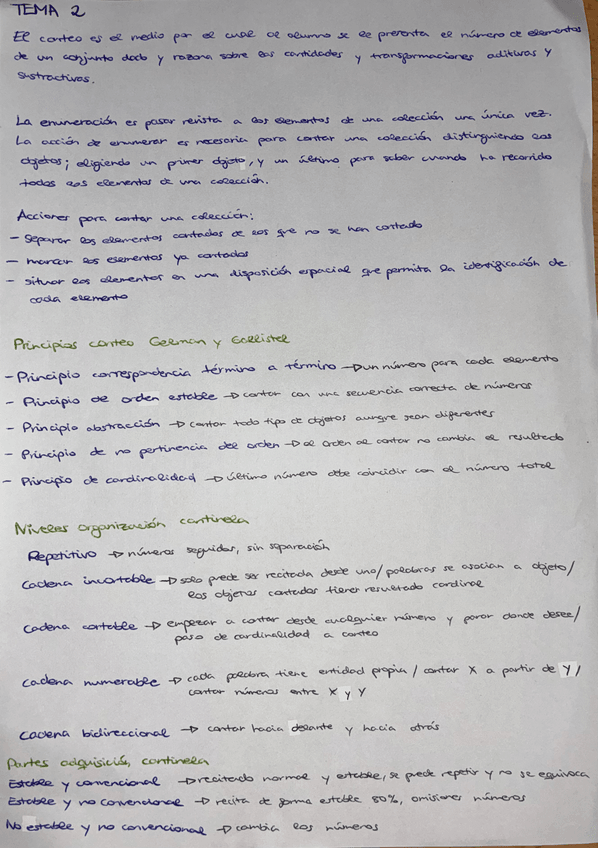 TEMA 2
El conteo es el medio por el cual al alumno se le presenta el número de elementos
de un conjunto dado y razona sobre las cantidades y transformaciones aditivas y
sustractivas.
La enumeración es pasar revista a los elementos de una colección una única vez.
La acción de enumerar es necesaria para contar una colección distinguiendo los
objetos; eligiendo un primer objeto, y un último para saber cuando ha recorrido
todos los elementos de una colección.
Acciones para contar una colección:
- Separar los elementos contados de los que no se han contado
- marcar los elementos ya contados
- situar los elementos en una disposición espacial que permita la identificación de
cada elemento
Principios conteo Gelman y Gallistel
- Principio correspondencia término a término → un número para cada elemento
- Principio de orden estable → contar con una secuencia correcta de números
- Principio abstracción → contar todo tipo de objetos aunque sean diferentes
- Principio de no pertinencia del orden → el orden al contar no cambia el resultado
- Principio de cardinalidad → último número debe coincidir con el número total
Niveles organización cantinela
Repetitivo → números seguidos, sin separación
Cadena incortable → solo puede ser recitada desde uno/ palabras se asocian a objeto/
los objetos contados tienen resultado cardinal
Cadena cortable → empezar a contar desde cualquier número y parar donde desee/
paso de cardinalidad a conteo
Cadena numerable → cada palabra tiene entidad propia / contar X a partir de Y/
contar números entre X y Y
Cadena bidireccional → contar hacia delante y hacia atrás
Partes adquisición cantinela
Estable y convencional → recitado normal y estable, se puede repetir y no se equivoca
Estable y no convencional → recita de forma estable 80%, omisiones números
No estable y no convencional → cambia los números